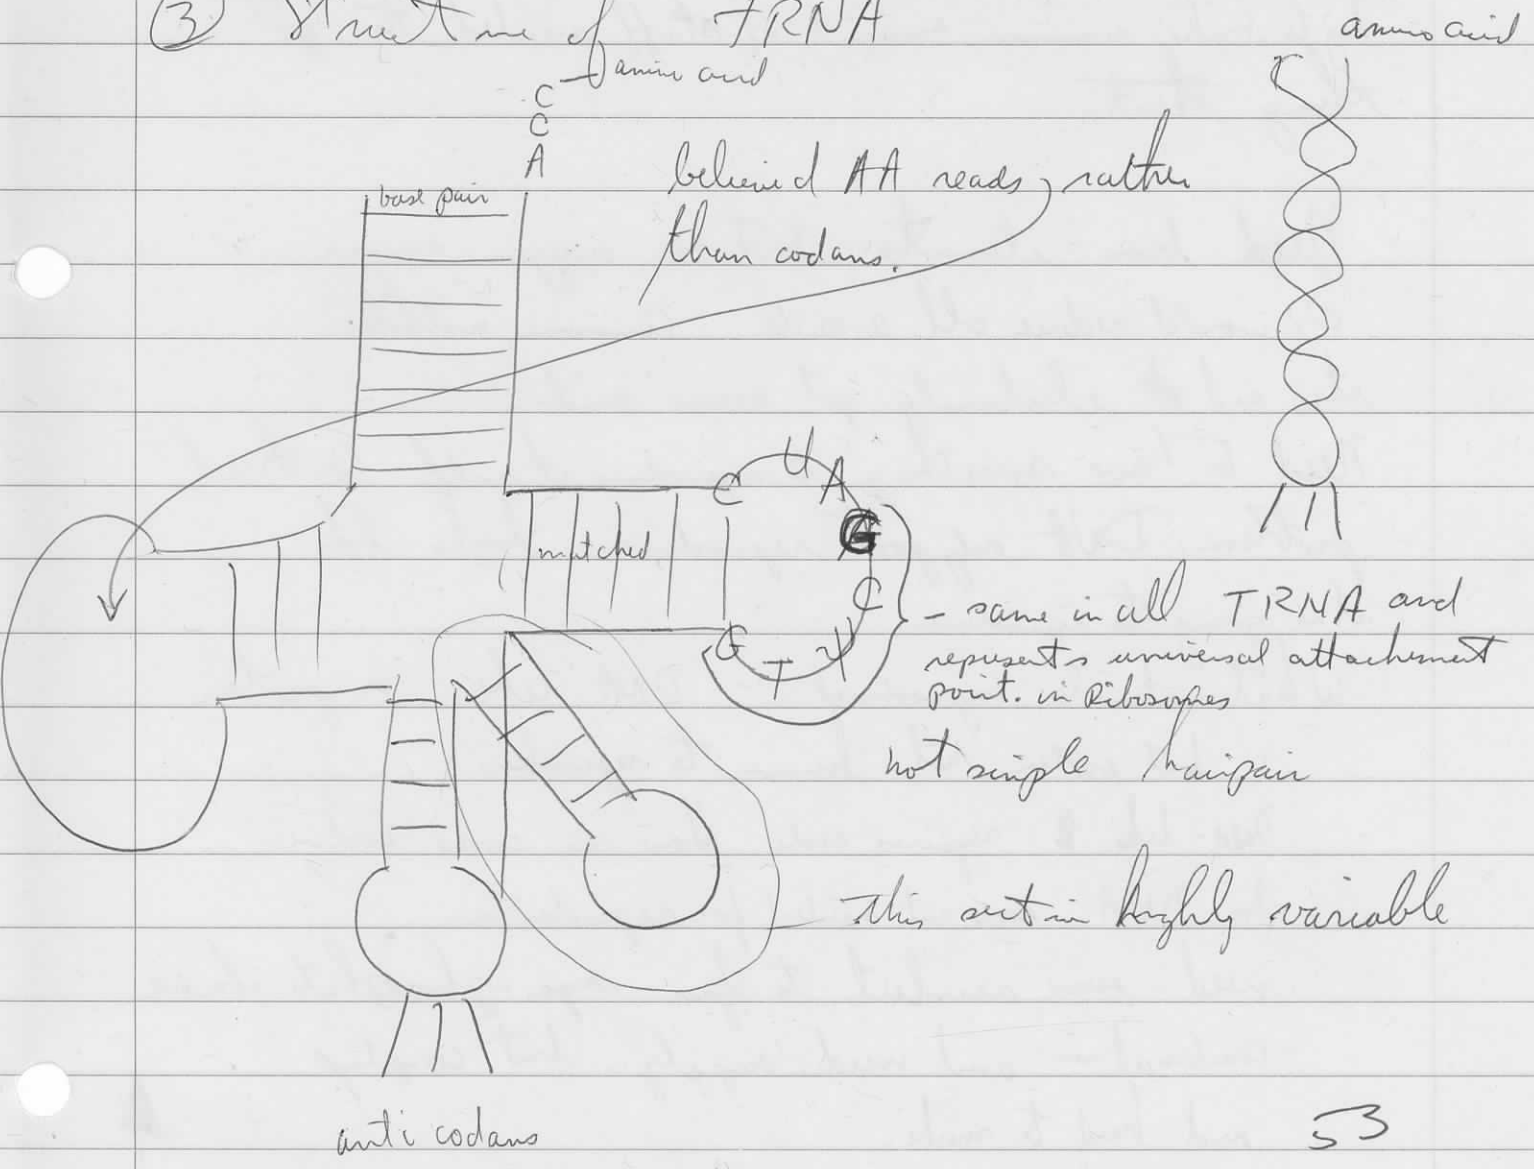 ③ Structure of TRNA
amino acid
amino acid
C
C
A
base pair
believed AA reads, rather
than codans.
C U A
G
matched
C
G T Ψ
- same in all TRNA and
represents universal attachement
point. in Ribosomes
not simple hairpair
This section highly variable
anti codans
53